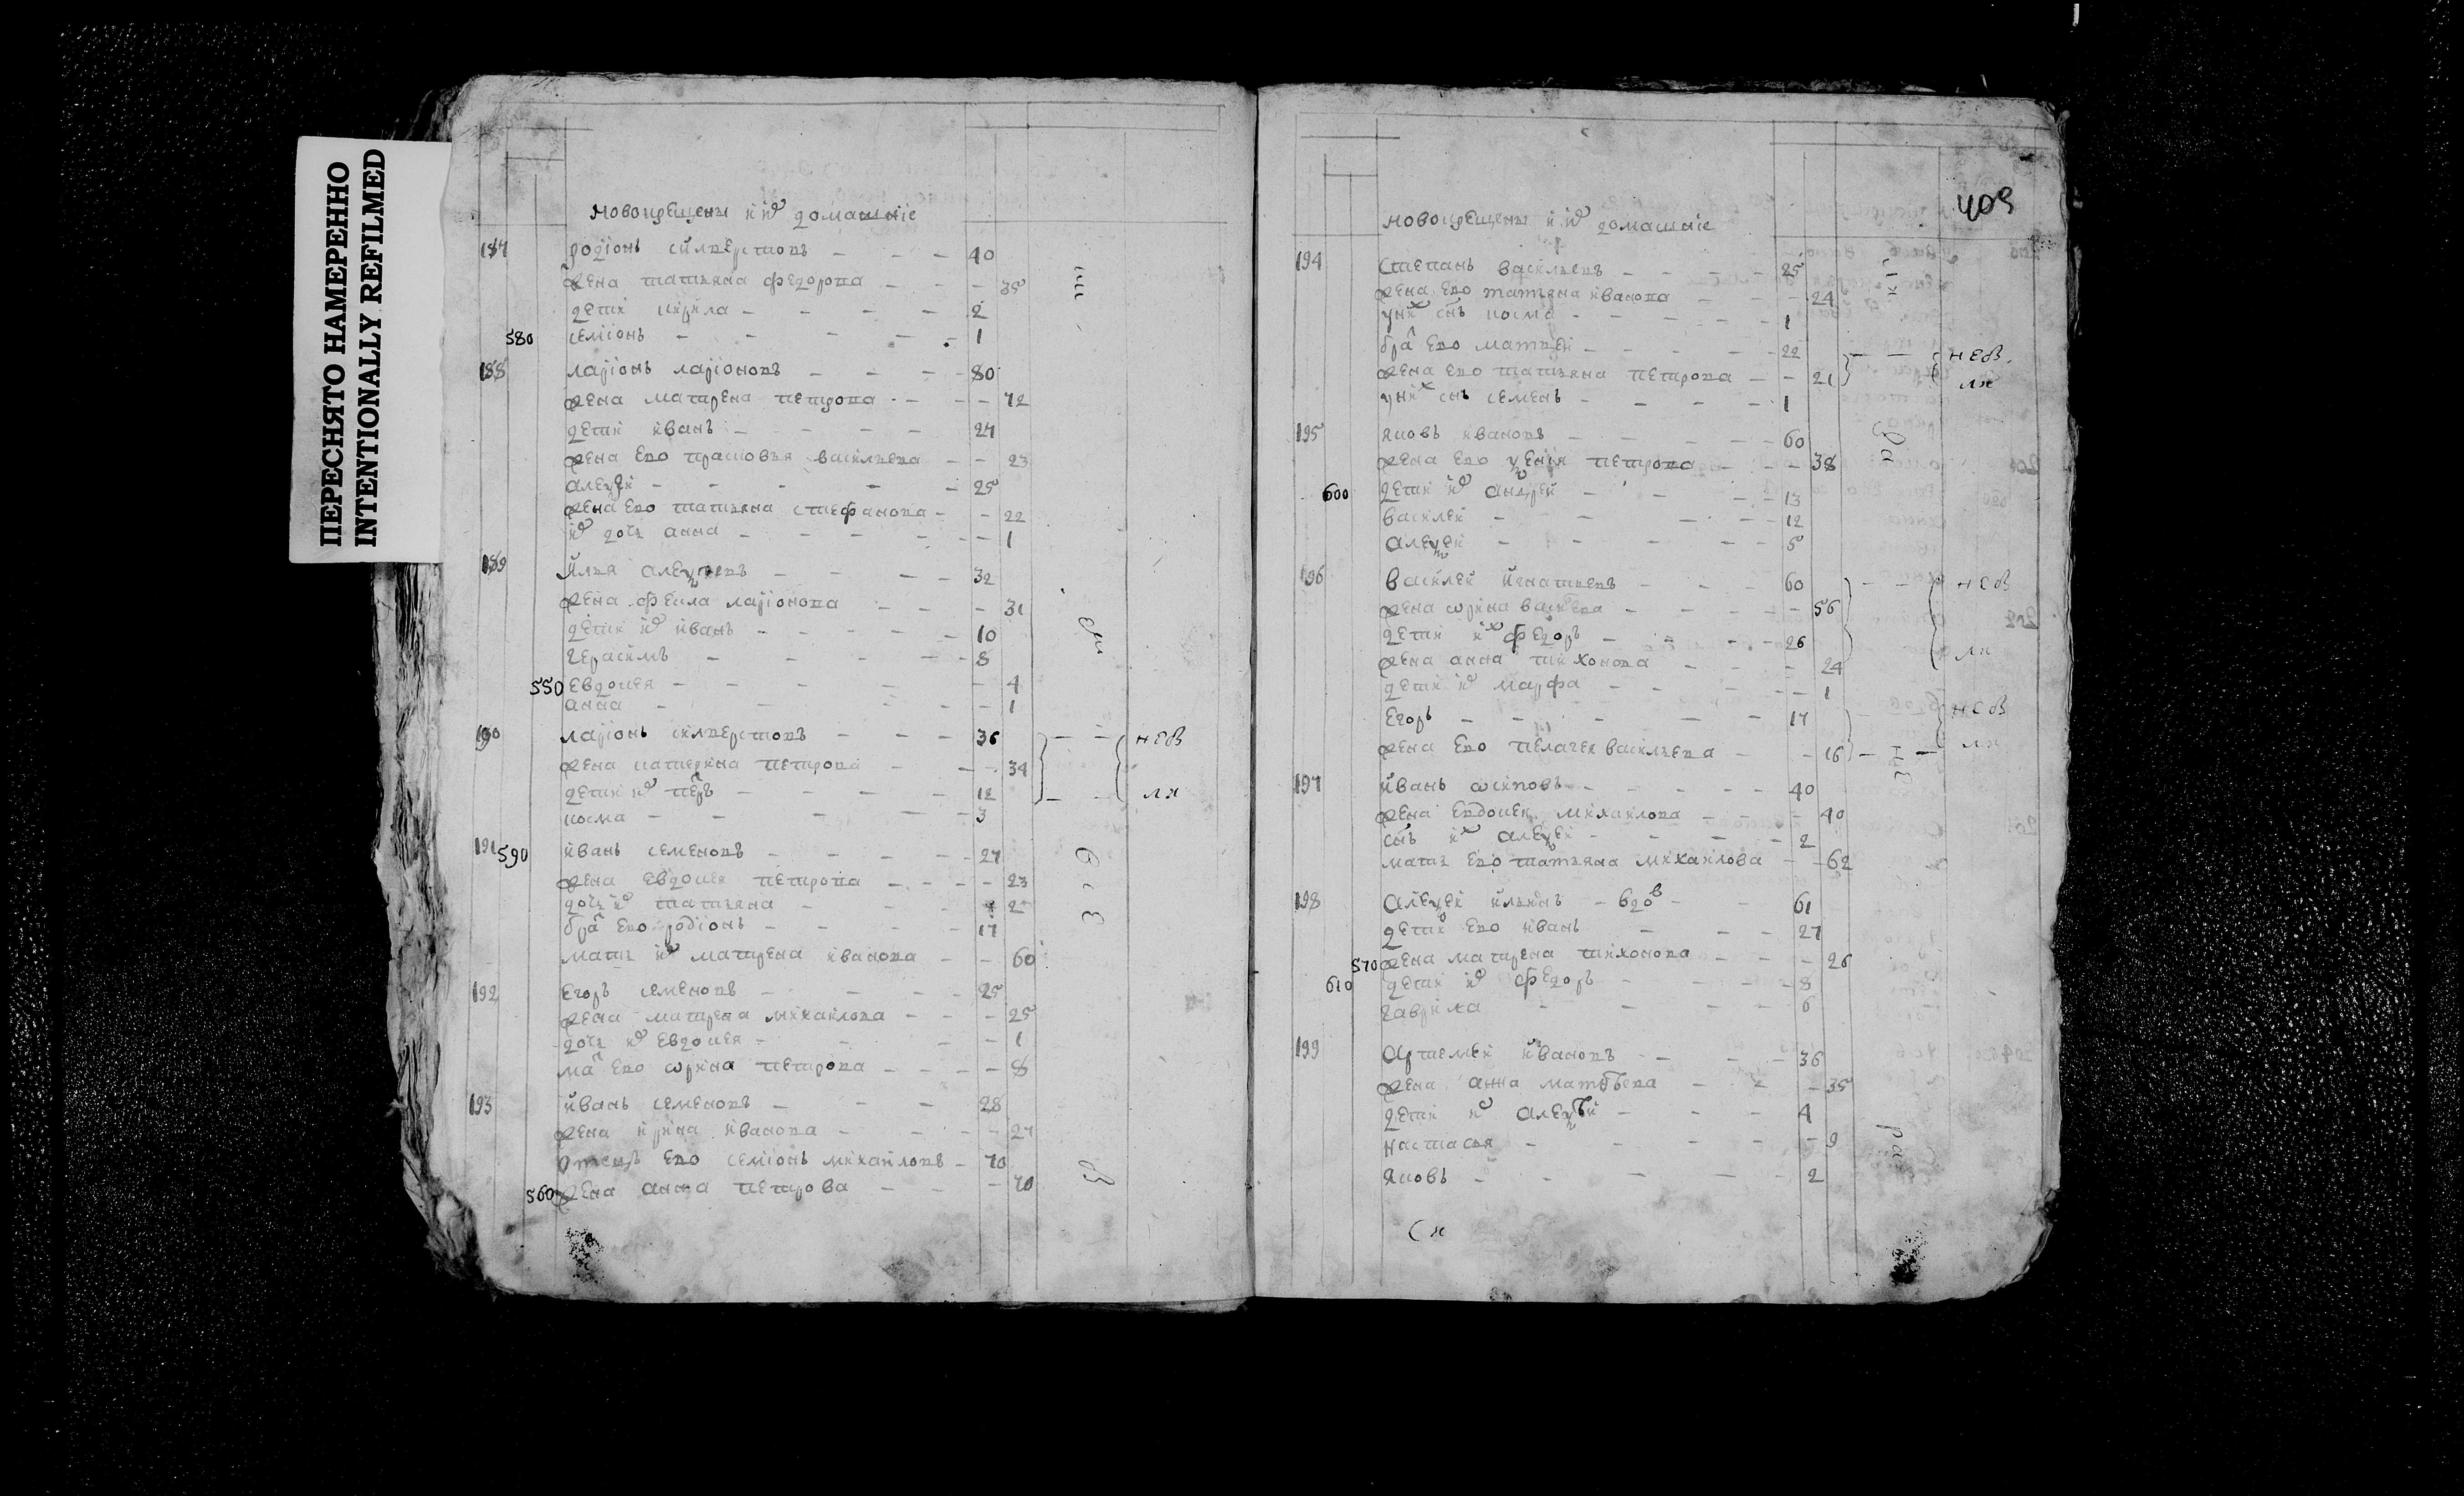 ПЕРЕСНЯТО НАМЕРЕННО
INTENTIONALLY REFILMED
новокрещены и их домашние
187 родіонъ силверстовъ - - - 40
жена татьяна федорова - - - 35
дети кирила - - - - 2
580 семіонъ - - - - 1
188 ларіонъ ларіоновъ - - - 80
жена матрена петрова - - - 72
дети иванъ - - - - 27
жена ево прасковья васильева - - 23
алеѯѣи - - - - 25
жена ево татьяна стефанова - - 22
их дочь анна - - - - - 1
189 Илья алеѯѣевъ - - - - 32
жена фекла ларіонова - - - 31
дети их иванъ - - - - - 10
герасимъ - - - - - 8
550 евдокея - - - - - 4
анна - - - - - 1
190 ларіонъ силверстовъ - - - 36 - - нев
жена катерина петрова - - - 34
дети их петръ - - - - - 12 - - ля
косма - - - - - 3
191 590 иванъ семеновъ - - - - 27
жена евдокея петрова - - - - 23
дочь их татьяна - - - 2
братъ ево родіонъ - - - - 17
мать их матрена иванова - - 60
192 егоръ семеновъ - - - - 25
жена матрена михаилова - - - 25
дочь их евдокея - - - - 1
мать ево ѡрина петрова - - - - 8
193 иванъ семеновъ - - - 28
жена ирина иванова - - - - 27
отецъ ево семіонъ михаиловъ - 70
560 жена анна петрова - - - 70
новокрещены и их домашние
409
194 степанъ васильевъ - - - - 25
жена ево татяна иванова - - - 24
у них снъ косма - - - - - 1
братъ ево матвеи - - - - - 22 - - нев
жена ево татьяна петрова - - 21 ля
у них снъ семенъ - - - - 1
195 яковъ ивановъ - - - - - 60
жена ево ѯения петрова - - - 38
600 дети их андреи - - - - 13
василеи - - - - - 12
алеѯеи - - - - - 5
196 василеи игнатьевъ - - - 60 - - нев
жена ѡрина - - - - - 56
дети их федоръ - - - - 26
жена анна тихонова - - - 24 ля
дети их марфа - - - - 1
егоръ - - - - - 17 нев
жена ево пелагея васильева - - 16 ля
197 иванъ ѡсиповъ - - - - - 40
жена евдокея михаилова - - - 40
снъ их алеѯеи - - - - 2
мать ево татьяна михаилова - - 62
198 алеѯеи ильинъ - вдов - - 61
дети ево иванъ - - - 27
570 жена матрена тихонова - - - 26
610 дети их федоръ - - - - 8
гаврила - - - - 6
199 артемеи ивановъ - - - 36
жена анна матѳѣева - - - 35
дети их алеѯѣи - - - 4
настасья - - - - - 9
яковъ - - - - - 2